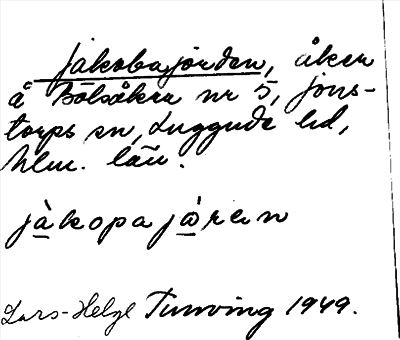 Jakobajorden, åker
å Bölsåker nr 5, Jons-
torps sn, Luggude hd,
Hlm. län.
jàkopajòren
Lars-Helge Tunving 1949.